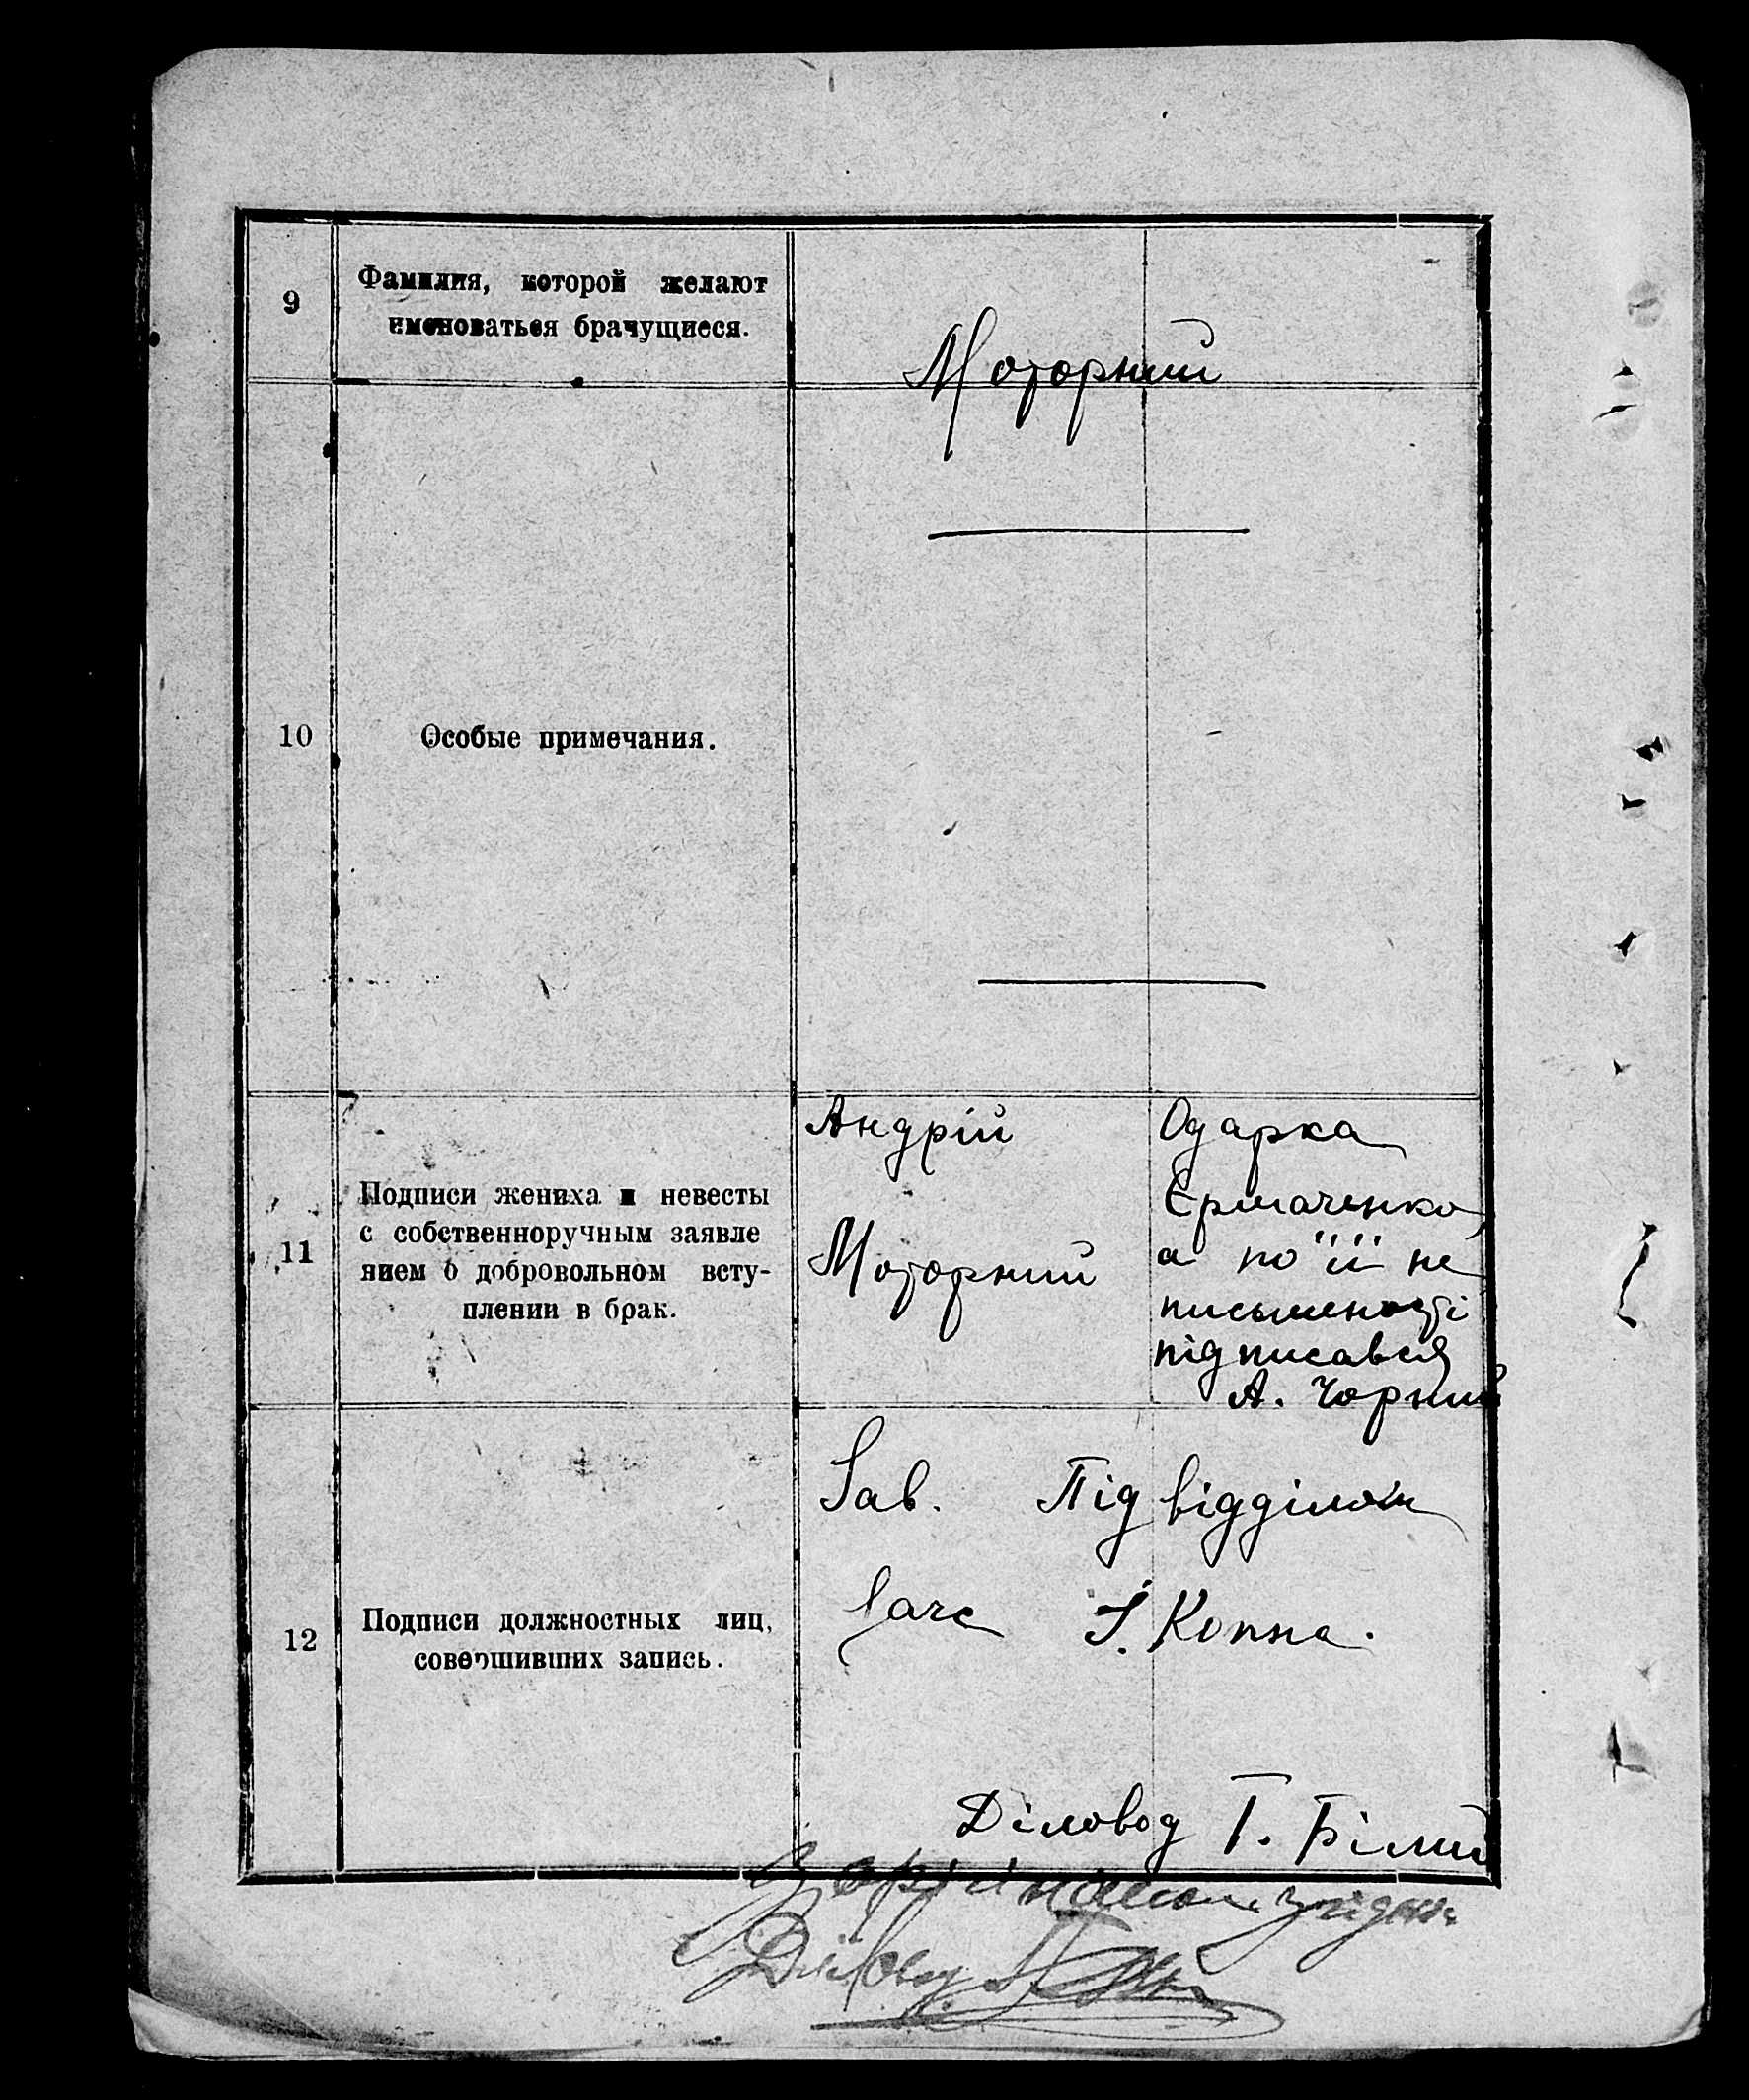 9
Фамилия, которой желают
именоваться брачущиеся.
Моторний
10
Особые примечания.
11
Подписи жениха и невесты
с собственноручным заявле
нием о добровольном всту-
плении в брак.
Андрій
Моторний
Одарка
Єрмаченко,
а по її не
письменості
підписався
А. Чорний
12
Подписи должностных лиц,
совершивших запись.
Зав. Підвідділом
Загс І. Копна.
Діловод Г. Білий
З оріґіналом згідно
Діловод